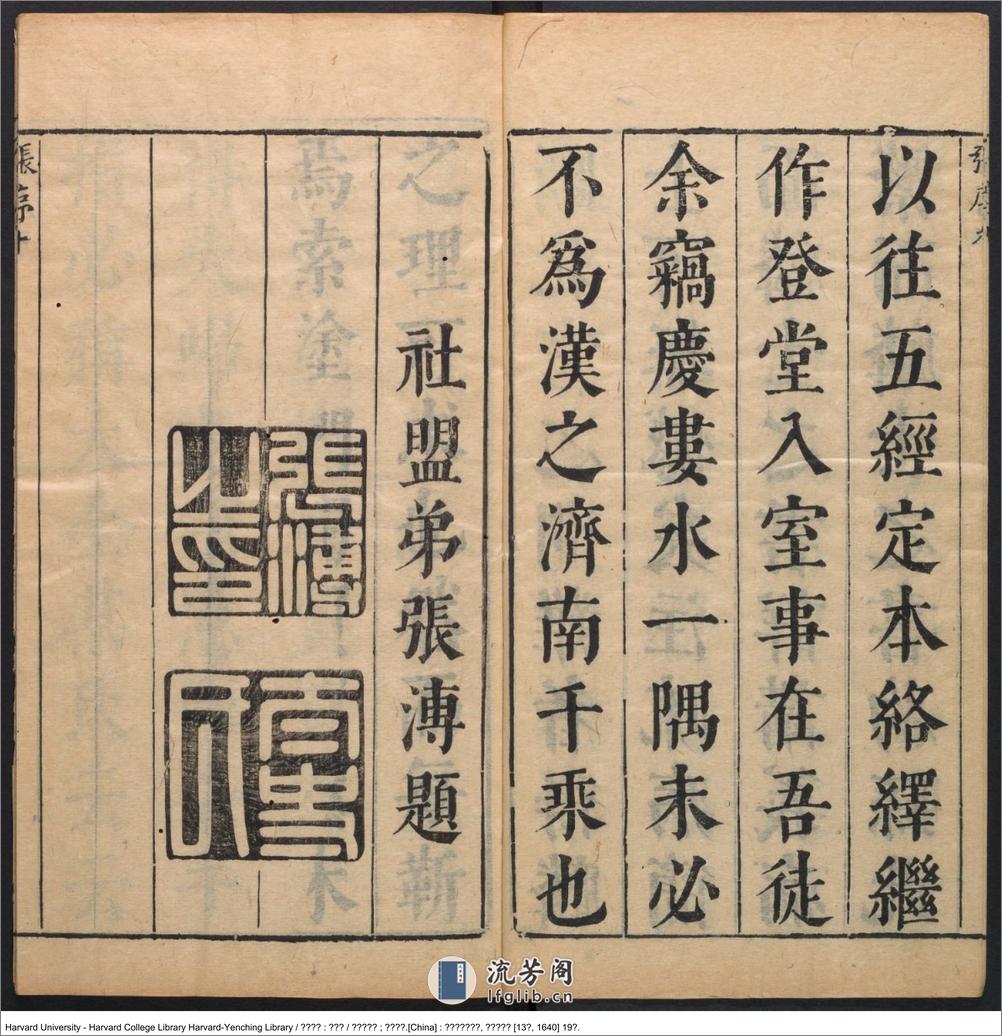 以往五經定本絡繹繼
作登堂入室事在吾徒
余竊慶婁水一隅未必
不為漢之濟南千乘也
社盟弟張溥題
張溥之印
張序十
流芳阁
lfglib.cn
Harvard University - Harvard College Library Harvard-Yenching Library / ???? : ??? / ????? ; ????.[China] : ???????, ????? [13?, 1640] 19?.